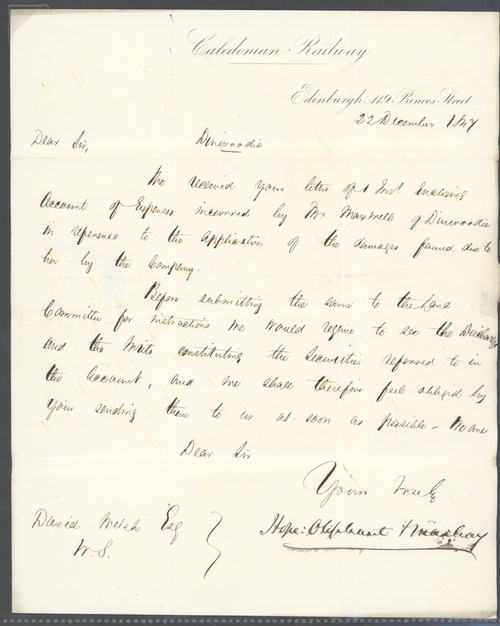 Caledonian Railway
Edinburgh, 119, Princes Street,
22 December 1847
Dear Sir,
Dinwoodie
We received your letter of 1 Inst Inclosing
Account of Expenses incurred by Mrs Maxwell of Dinwoodie
in reference to the application of the damages found due to
her by the Company.
Before submitting the same to the Land
Committee for instructions We would require to see the Discharges
and the Writs constituting the Securities referred to in
the Account, and we shall therefore feel obliged by
your sending them to us as soon as possible – We are
Dear Sir
Yours truly
Hope: Oliphant & Mackay
David Welsh Esq
W.S.